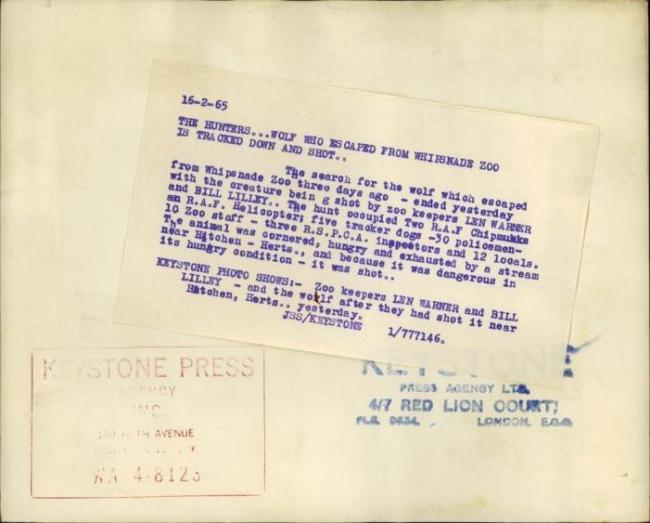 16-2-65
THE HUNTERS...WOLF WHO ESCAPED FROM WHIPSNADE ZOO
IS TRACKED DOWN AND SHOT..
The search for the wolf which escaped
from Whipsnade Zoo three days ago - ended yesterday
with the creature bein g shot by zoo keepers LEN WARNER
and BILL LILLEY.. The hunt occupied Two R.A.F Chipmukks
an R.A.F. Helicopter; five tracker dogs -30 policemen-
10 Zoo staff - three R.S.P.C.A. inspectors and 12 locals.
The animal was cornered, hungry and exhausted by a stream
near Hitchen - Herts., and because it was dangerous in
its hungry condition - it was shot..
KEYSTONE PHOTO SHOWS:- Zoo keepers LEN WARNER and BILL
LILLEY - and the wolf after they had shot it near
Hitchen, Herts.. yesterday.
JSS/KEYSTONE 1/777146.
KEYSTONE PRESS
AGENCY
INC.
FIFTH AVENUE
WA 4-8123
KEYSTONE
PRESS AGENCY LTD.
4/7 RED LION COURT;
FLE 9634. LONDON, E.C.4